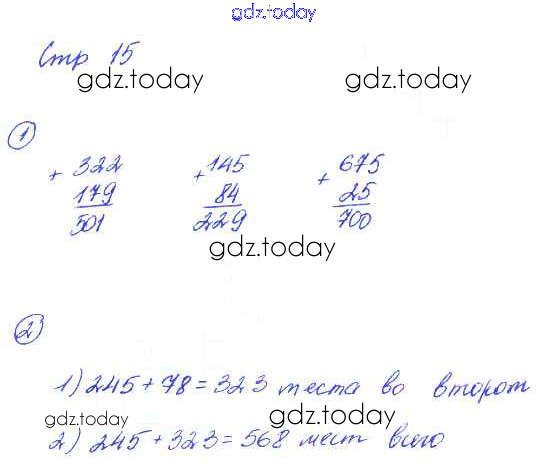 gdz.today
Стр 15
gdz.today gdz.today
1
+ 322 + 145 + 675
179 84 25
501 229 700
gdz.today
2)
1) 245 + 78 = 323 места во втором
gdz.today gdz.today
2) 245 + 323 = 568 мест всего